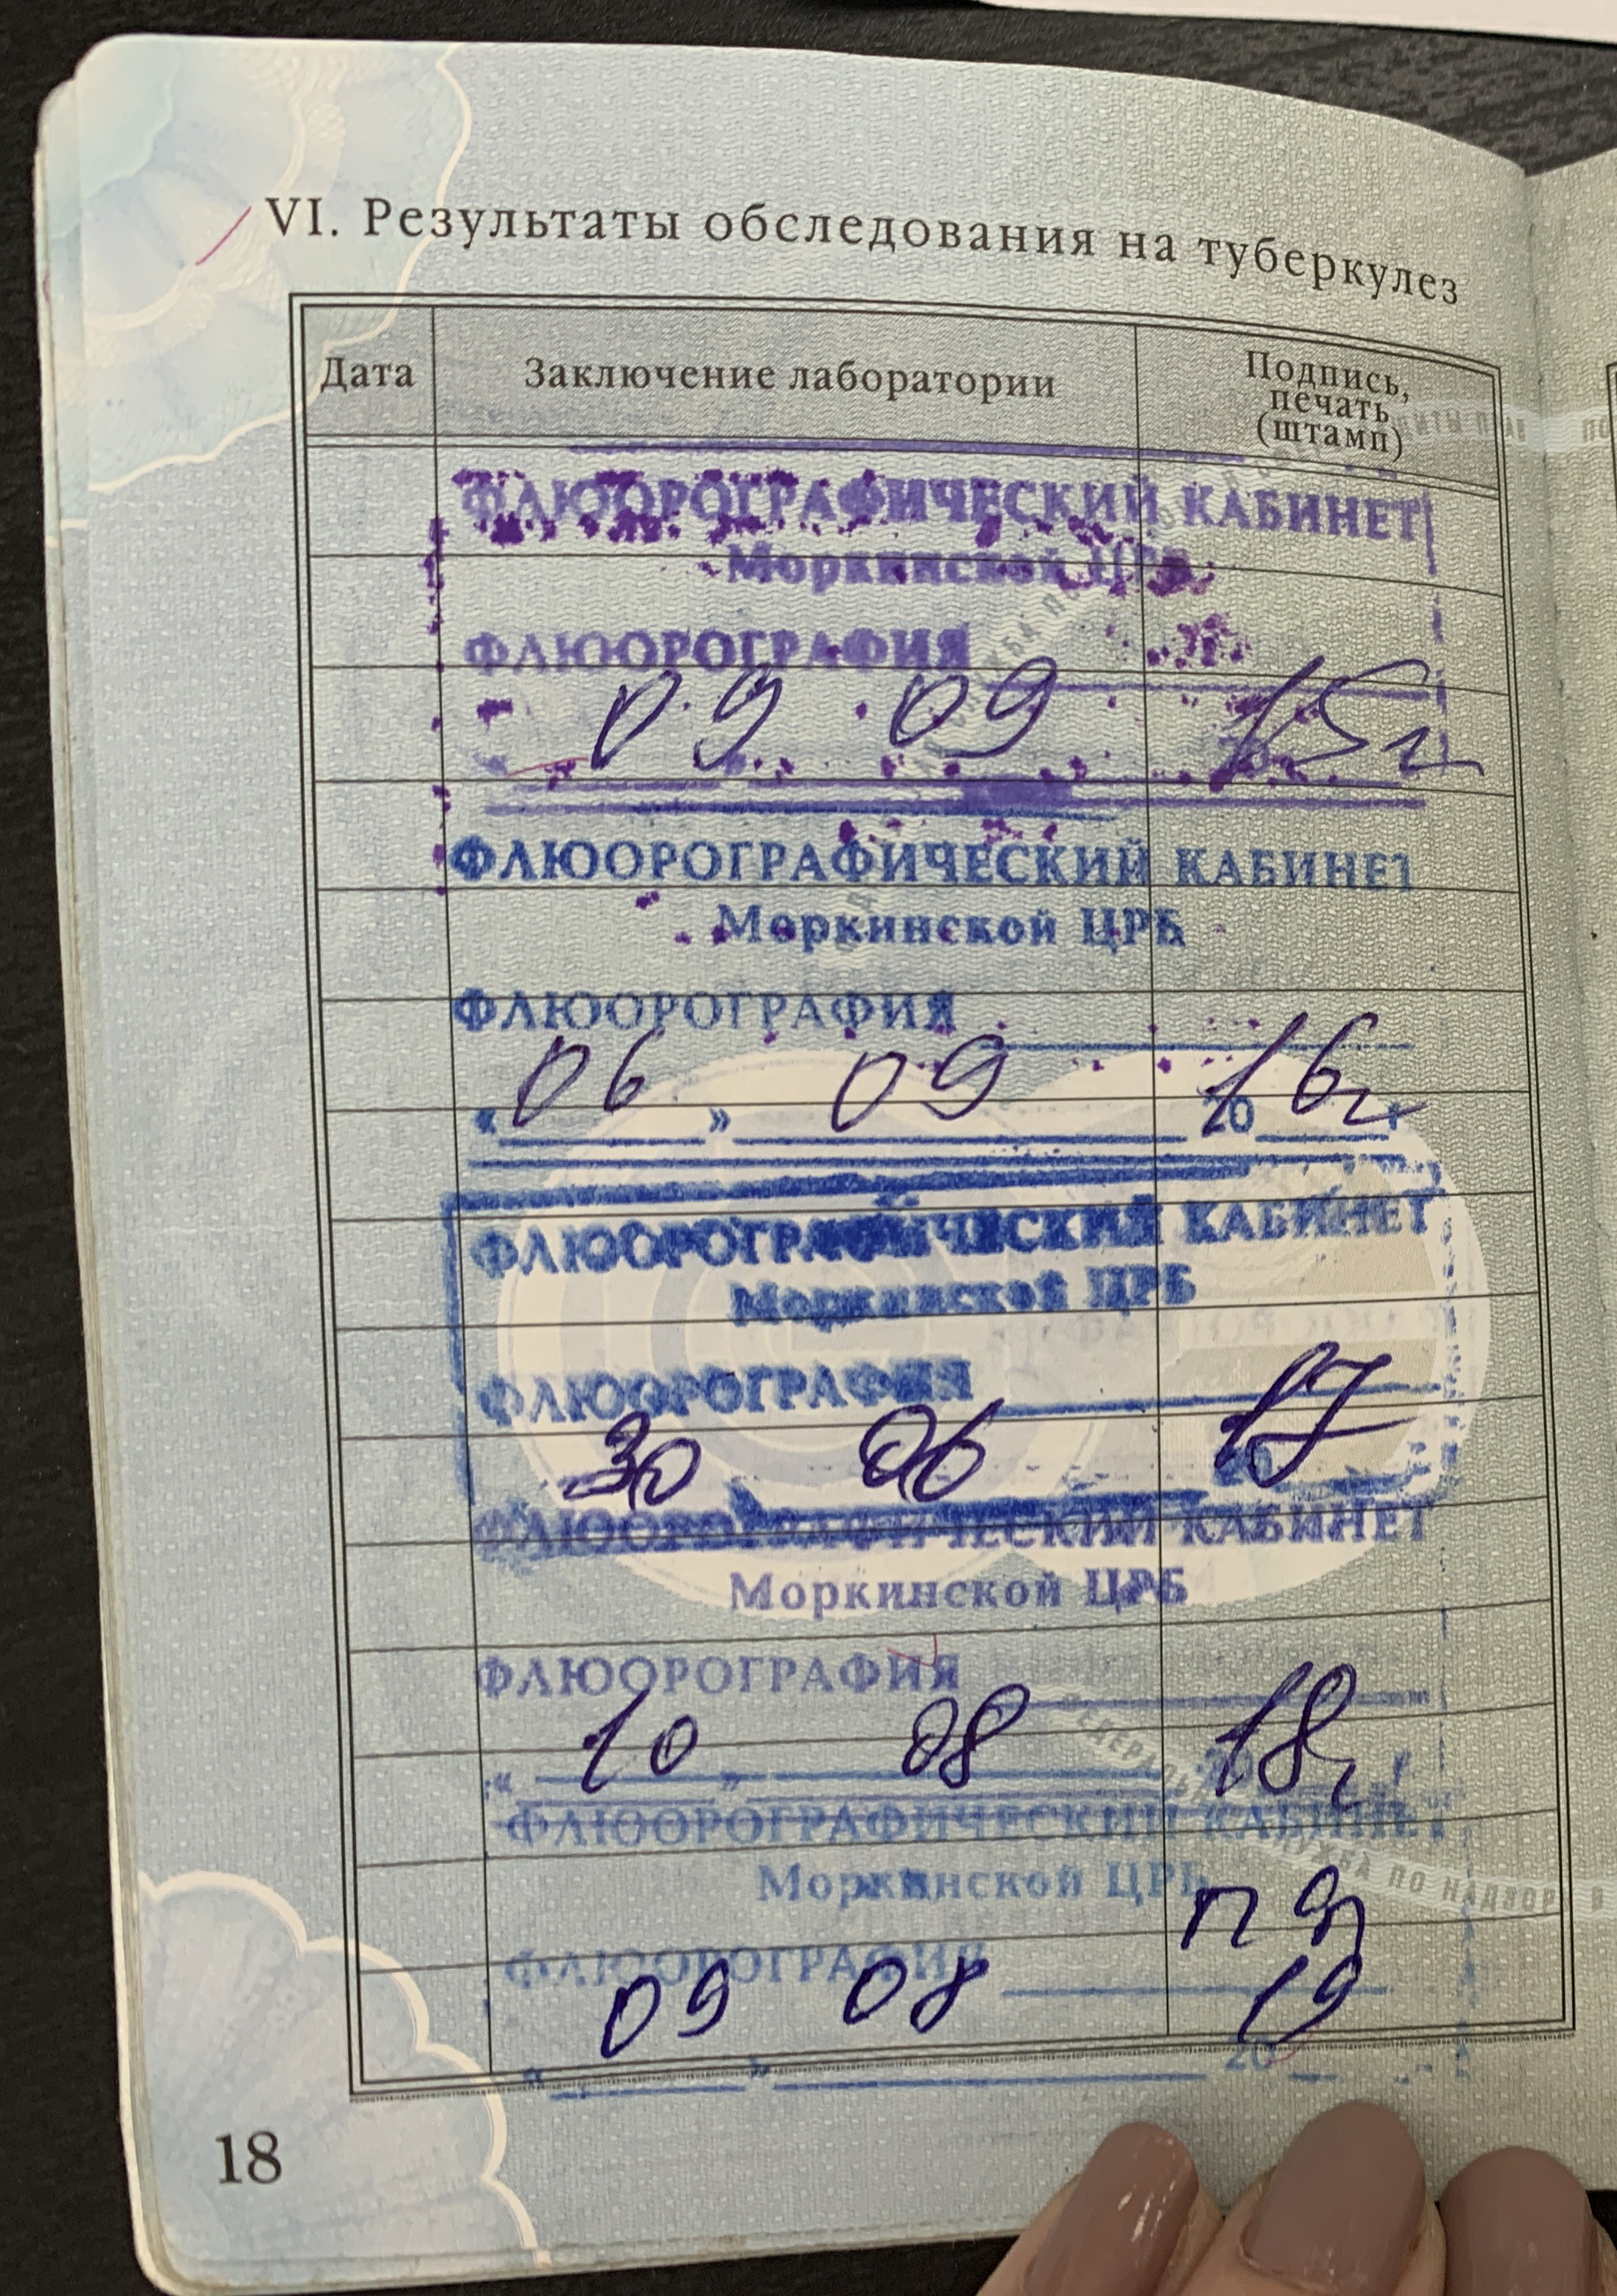 VI. Результаты обследования на туберкулез
Дата
Заключение лаборатории
Подпись,
печать
(штамп)
ФЛЮОРОГРАФИЧЕСКИЙ КАБИНЕТ
Моркинской ЦРБ
ФЛЮОРОГРАФИЯ
09 09 15г
ФЛЮОРОГРАФИЧЕСКИЙ КАБИНЕТ
Моркинской ЦРБ
ФЛЮОРОГРАФИЯ
« 06 » 09 20 16г
ФЛЮОРОГРАФИЧЕСКИЙ КАБИНЕТ
Моркинской ЦРБ
ФЛЮОРОГРАФИЯ
30 06 17
ФЛЮОРОГРАФИЧЕСКИЙ КАБИНЕТ
Моркинской ЦРБ
ФЛЮОРОГРАФИЯ
« 10 » 08 20 18г
ФЛЮОРОГРАФИЧЕСКИЙ КАБИНЕТ
Моркинской ЦРБ
ФЛЮОРОГРАФИЯ
09 08 19
« » 20
СЛУЖБА ПО НАДЗОРУ В
18